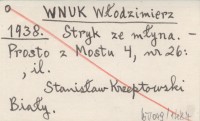 WNUK Włodzimierz
1938. Stryk ze młyna. -
Prosto z Mostu 4, nr 26:
, il.
Stanisław Krzeptowski
Biały.